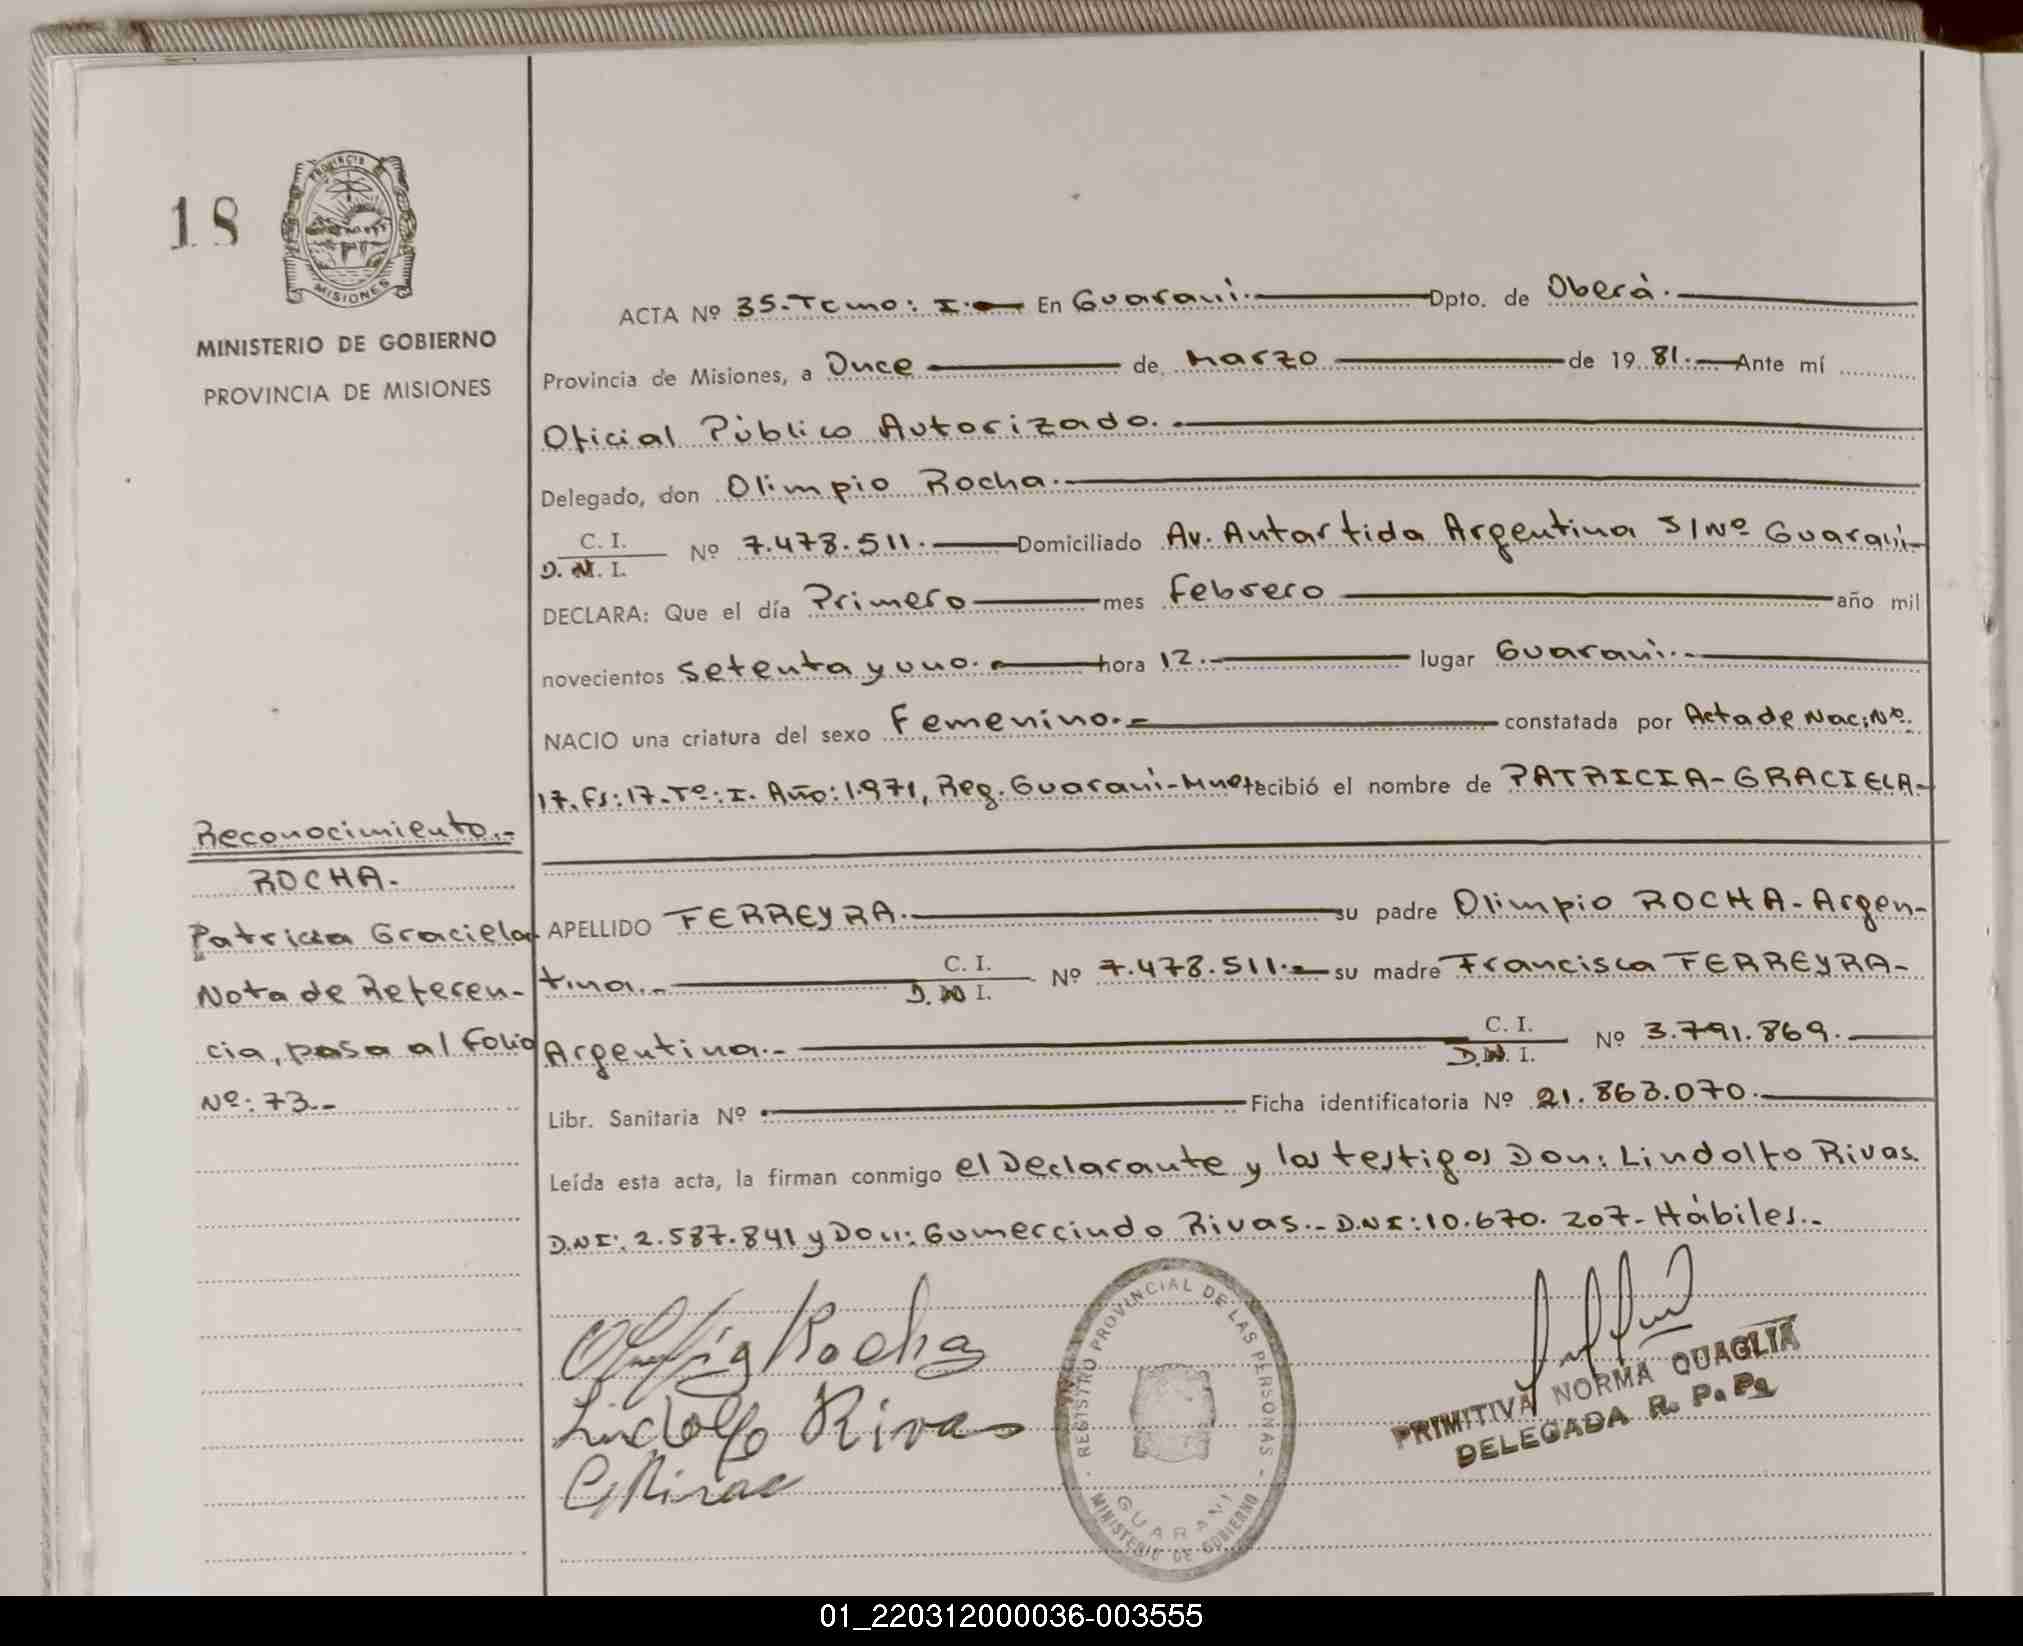 18
PROVINCIA
MISIONES
MINISTERIO DE GOBIERNO
PROVINCIA DE MISIONES
ACTA Nº 35.-Tomo: I.- En Guaraní.- Dpto. de Oberá.-
Provincia de Misiones, a Once de Marzo de 19 81.- Ante mí
Oficial Público Autorizado.-
Delegado, don Olimpio Rocha.-
C. I.
D. N. I. Nº 7.478.511.- Domiciliado Av. Antartida Argentina S/Nº Guaraní-
DECLARA: Que el día Primero mes Febrero año mil
novecientos setenta y uno.- hora 12.- lugar Guaraní.-
NACIO una criatura del sexo Femenino.- constatada por Acta de Nac; Nº.
17. Fs: 17. Tº: I. Año: 1.971, Reg. Guaraní-Mnes recibió el nombre de PATRICIA-GRACIELA-
Reconocimiento.-
ROCHA.
Patricia Graciela
Nota de Referen-
cia, pasa al Folio
Nº: 73.-
APELLIDO FERREYRA.- su padre Olimpio ROCHA-Argen-
tina.- C. I.
D. N I. Nº 7.478.511.- su madre Francisca FERREYRA-
Argentina.- C. I.
D.N. I. Nº 3.791.869.-
Libr. Sanitaria Nº Ficha identificatoria Nº 21.863.070.-
Leída esta acta, la firman conmigo el Declarante y los testigos Don: Lindolfo Rivas.
D.NI: 2.587.841 y Don: Gumercindo Rivas.- D.NI: 10.670.207- Hábiles.-
Rocha
Lindolfo Rivas
G Rivas
REGISTRO PROVINCIAL DE LAS PERSONAS
GUARANI
MINISTERIO DE GOBIERNO
PRIMITIVA NORMA QUAGLIA
DELEGADA R. P. P.
01_220312000036-003555